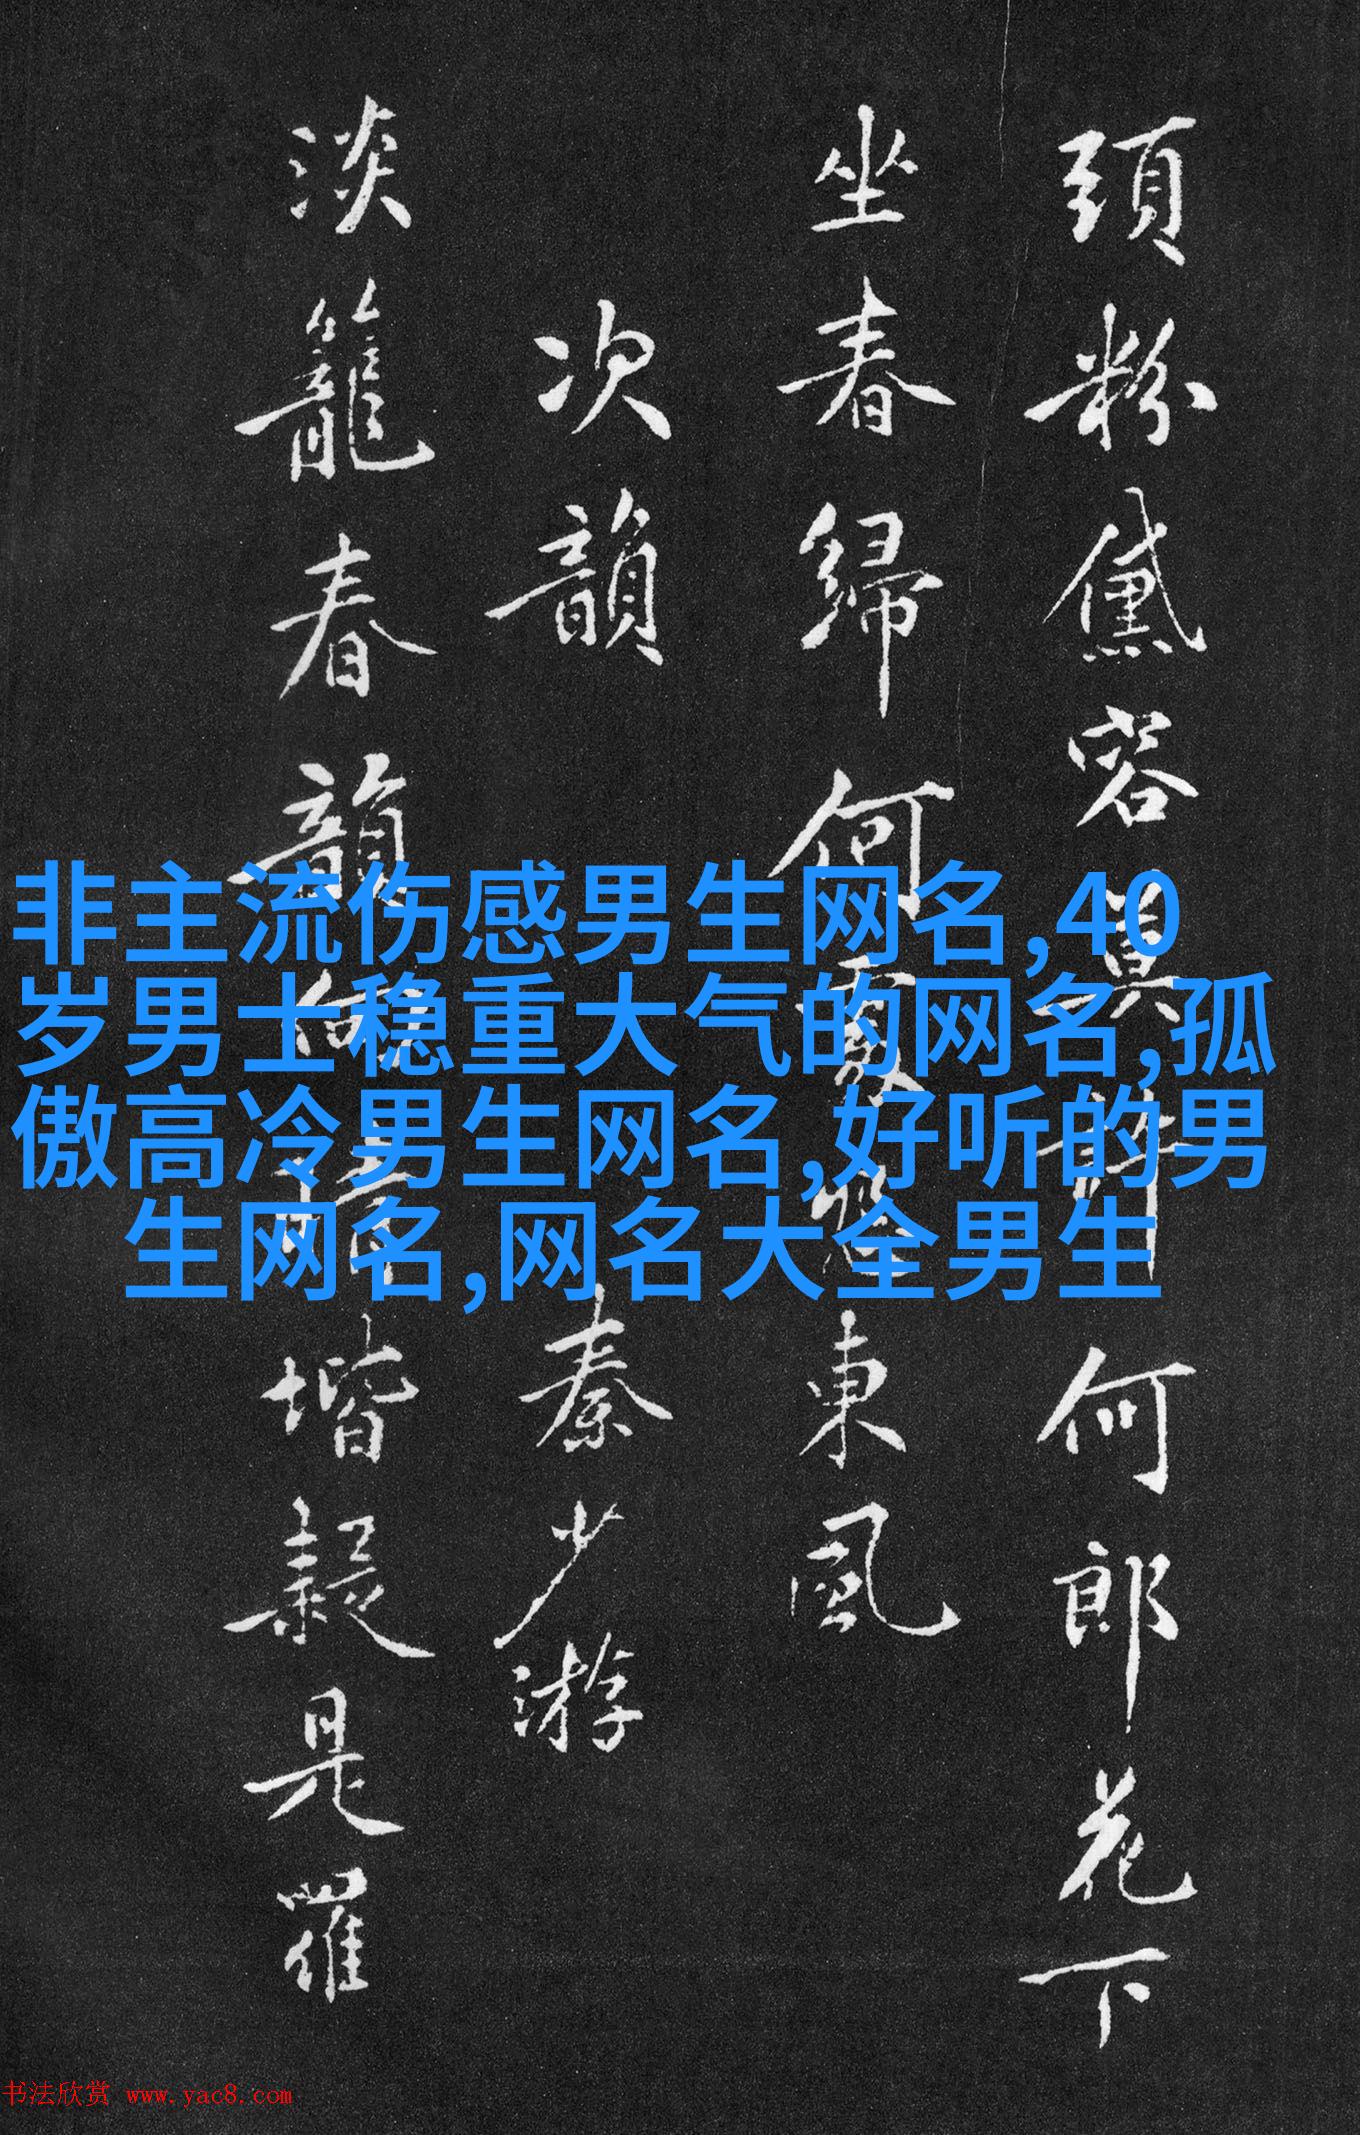 頭粉黛容莫 何郎花下
坐春歸何處 東風
次韻 秦少游
淡籠春韻何 堦疑是羅
非主流伤感男生网名,40
岁男士稳重大气的网名,孤
傲高冷男生网名,好听的男
生网名,网名大全男生
书法欣赏 www.yac8.com